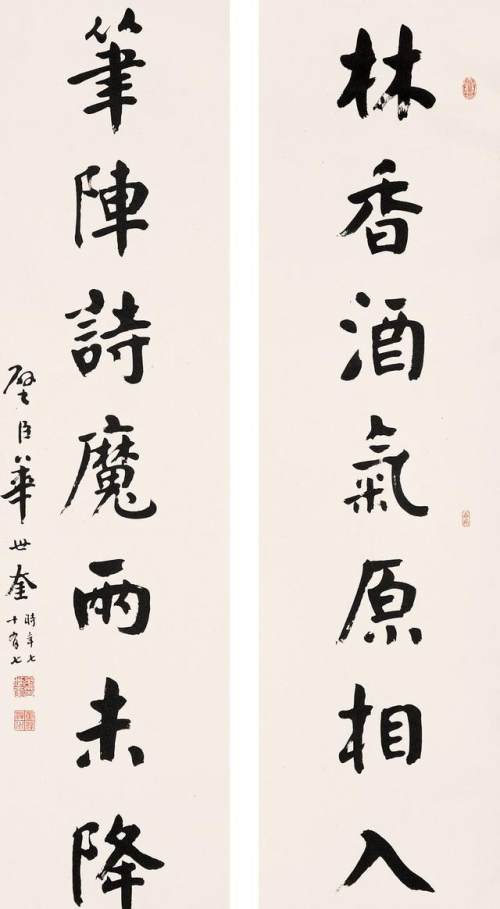 林香酒氣原相入
筆陣詩魔兩未降
璧臣華世奎
時年七
十有七